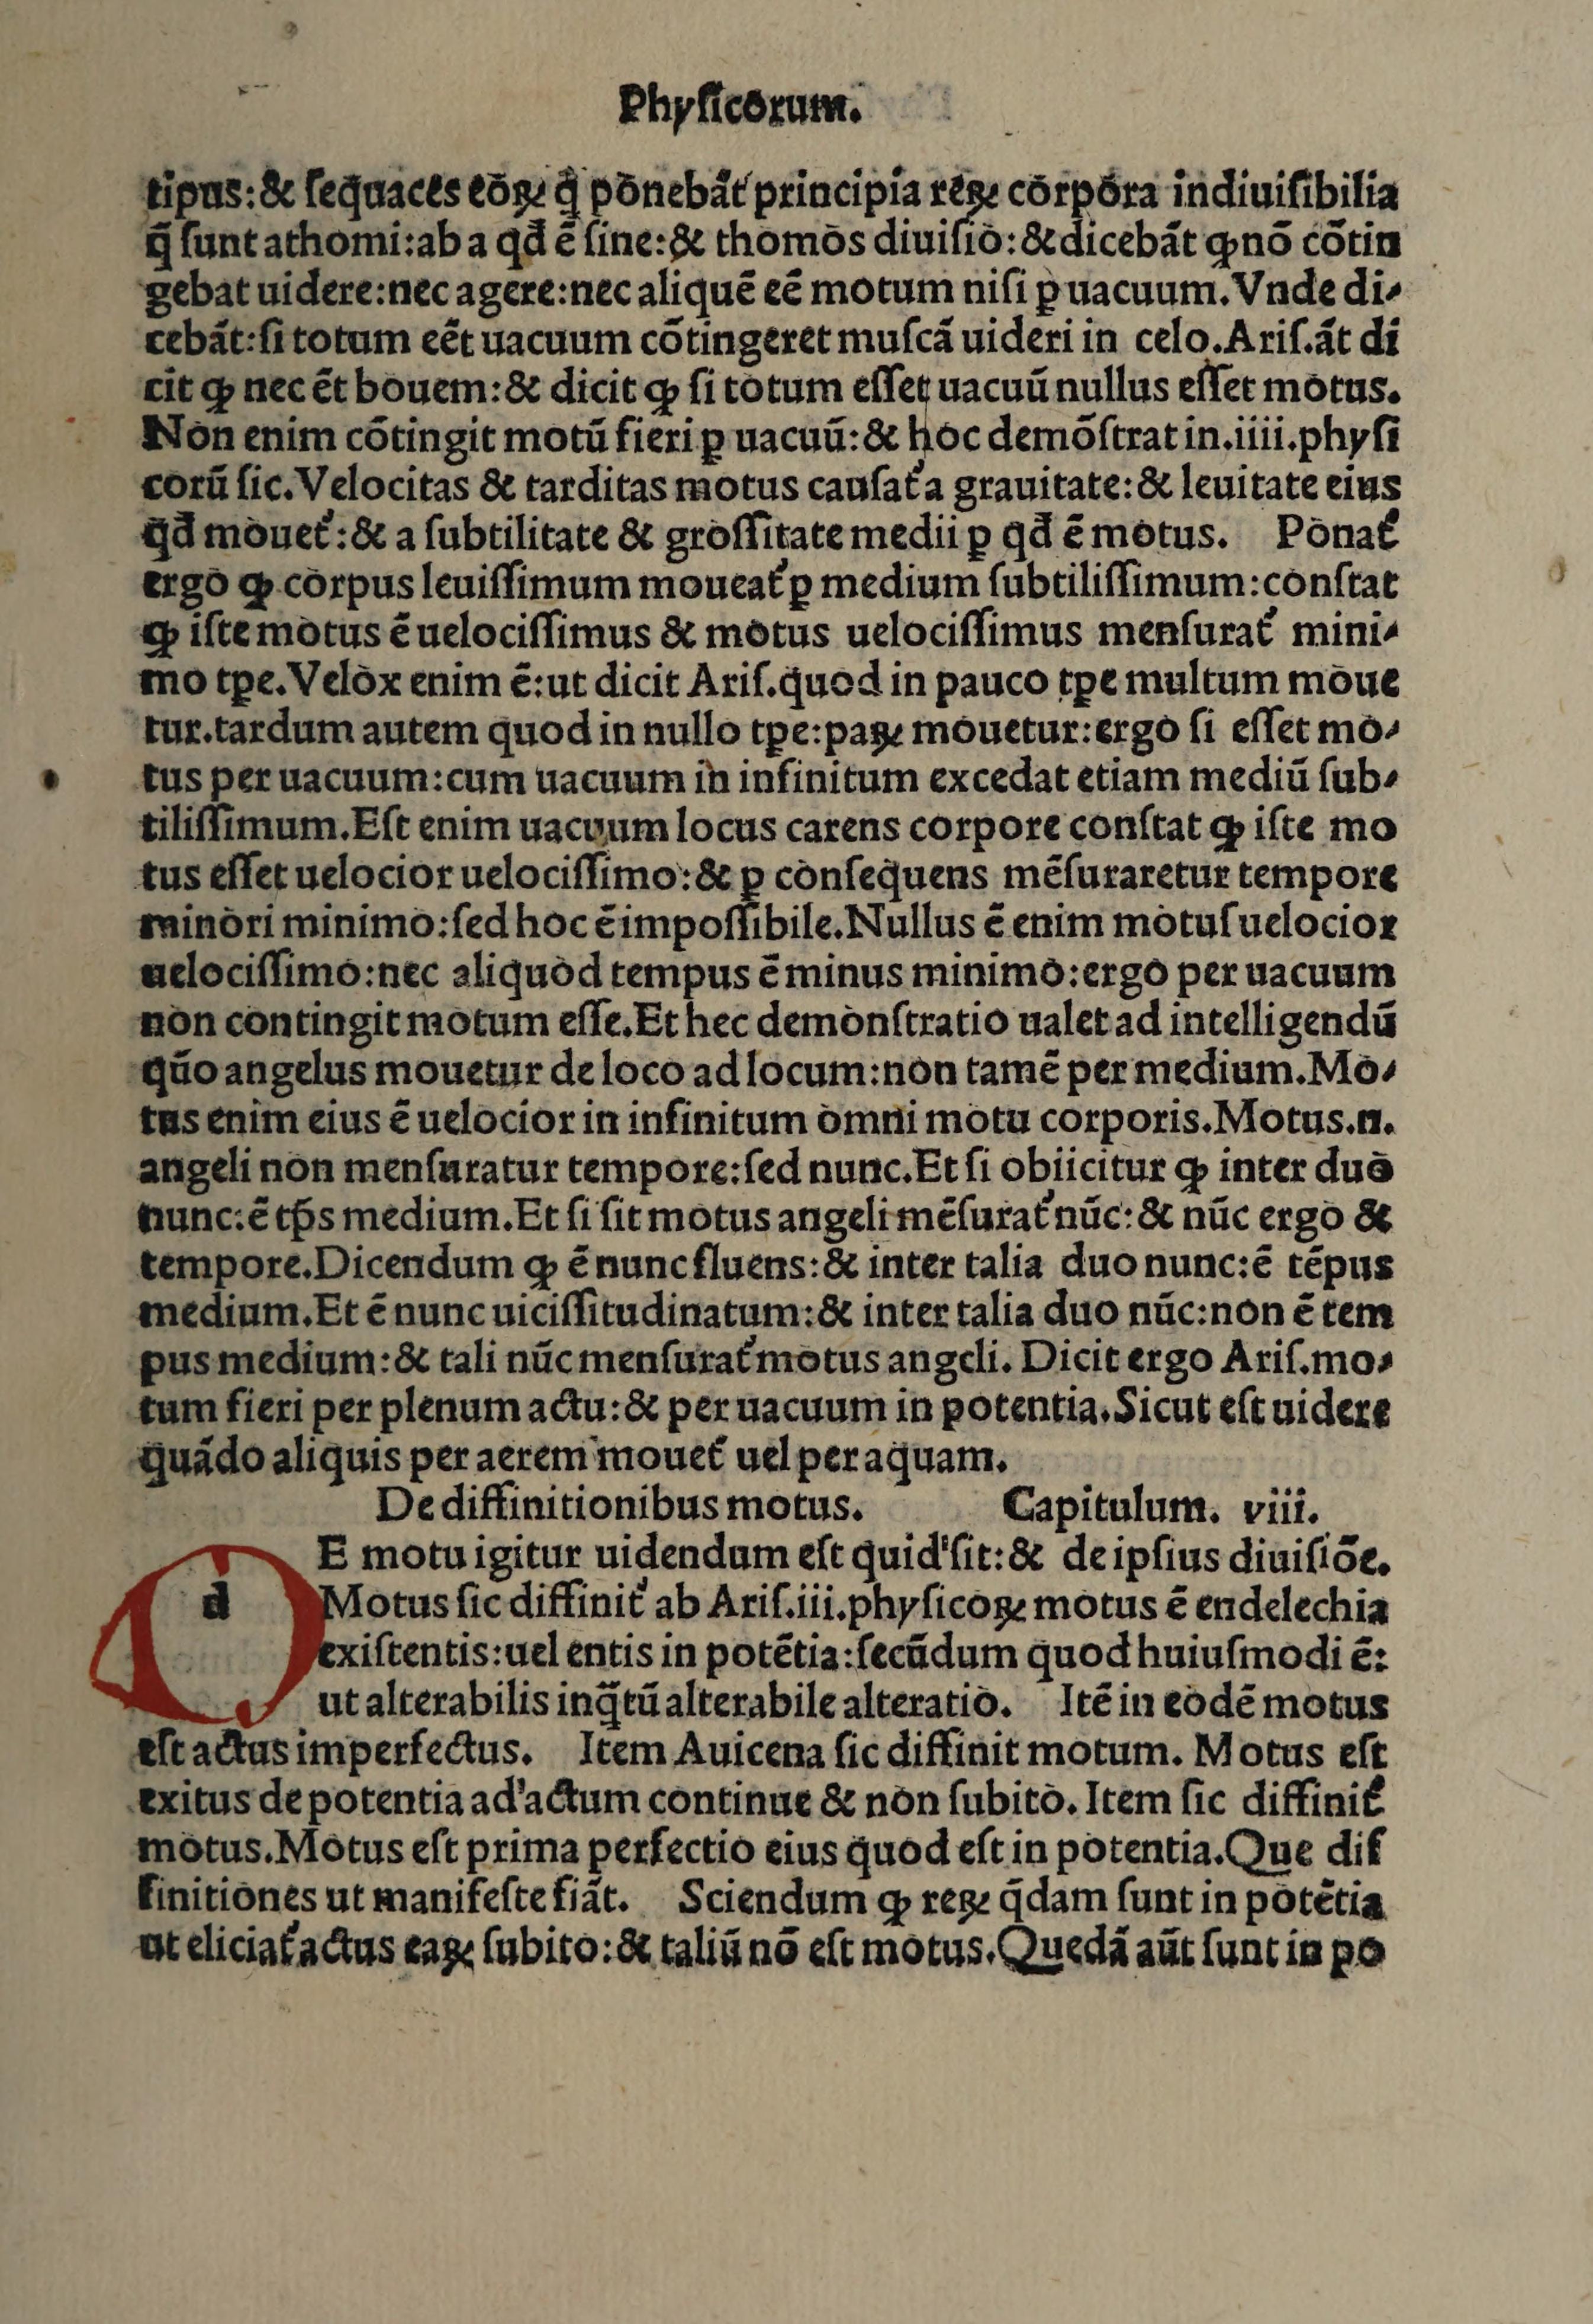 Phyſicorum.
tipus:& ſeq̄uaces eōꝝ q̄ ponebāt principia reꝝ corpora indiuiſibilia
q̄ ſunt athomi:ab a qđ ē ſine:& thomos diuiſio:& dicebāt ꝙ nō cōtin
gebat uidere:nec agere:nec aliquē eē motum niſi ꝑ uacuum.Vnde di⸗
cebāt:ſi totum eēt uacuum cōtingeret muſcā uideri in celo.Ariſ.āt di
cit ꝙ nec ēt bouem:& dicit ꝙ ſi totum eſſet uacuū nullus eſſet motus.
Non enim cōtingit motū fieri ꝑ uacuū:& hoc demōſtrat in.iiii.phyſi
corū ſic.Velocitas & tarditas motus cauſat᷑ a grauitate:& leuitate eius
qđ mouet᷑:& a ſubtilitate & groſſitate medii ꝑ qđ ē motus. Ponat᷑
ergo ꝙ corpus leuiſſimum moueat᷑ ꝑ medium ſubtiliſſimum:conſtat
ꝙ iſte motus ē uelociſſimus & motus uelociſſimus menſurat᷑ mini⸗
mo tꝑe.Velox enim ē:ut dicit Ariſ.quod in pauco tꝑe multum moue
tur.tardum autem quod in nullo tꝑe:paꝝ mouetur:ergo ſi eſſet mo⸗
tus per uacuum:cum uacuum in infinitum excedat etiam mediū ſub⸗
tiliſſimum.Eſt enim uacuum locus carens corpore conſtat ꝙ iſte mo
tus eſſet uelocior uelociſſimo:& ꝑ conſequens mēſuraretur tempore
minori minimo:ſed hoc ē impoſſibile.Nullus ē enim motuſ uelocior
uelociſſimo:nec aliquod tempus ē minus minimo:ergo per uacuum
non contingit motum eſſe.Et hec demonſtratio ualet ad intelligendū
quō angelus mouetur de loco ad locum:non tamē per medium.Mo⸗
tus enim eius ē uelocior in infinitum omni motu corporis.Motus.n.
angeli non menſuratur tempore:ſed nunc.Et ſi obiicitur ꝙ inter duo
nunc:ē tp̄s medium.Et ſi ſit motus angeli mēſurat᷑ nūc:& nūc ergo &
tempore.Dicendum ꝙ ē nunc fluens:& inter talia duo nunc:ē tēpus
medium.Et ē nunc uiciſſitudinatum:& inter talia duo nūc:non ē tem
pus medium:& tali nūc menſurat᷑ motus angeli. Dicit ergo Ariſ.mo⸗
tum fieri per plenum actu:& per uacuum in potentia.Sicut eſt uidere
quādo aliquis per aerem mouet᷑ uel per aquam.
De diffinitionibus motus. Capitulum. viii.
d E motu igitur uidendum eſt quid ſit:& de ipſius diuiſiōe.
Motus ſic diffinit᷑ ab Ariſ.iii.phyſicoꝝ motus ē endelechia
exiſtentis:uel entis in potētia:ſecūdum quod huiuſmodi ē:
ut alterabilis inq̄tū alterabile alteratio. Itē in eodē motus
eſt actus imperfectus. Item Auicena ſic diffinit motum. Motus eſt
exitus de potentia ad actum continue & non ſubito. Item ſic diffinit᷑
motus.Motus eſt prima perfectio eius quod eſt in potentia.Que dif
finitiones ut manifeſte fiāt. Sciendum ꝙ reꝝ q̄dam ſunt in potētia
ut eliciat᷑ actus eaꝝ ſubito:& taliū nō eſt motus.Quedā aūt ſunt in po